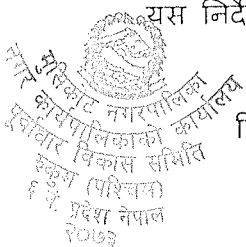 यस निर्दे
नगरपालिका
नगर कार्यपालिकाको कार्यालय
पूर्वाधार विकास समिति
रुकुम (पश्चिम)
६ नं. प्रदेश नेपाल
२०७३